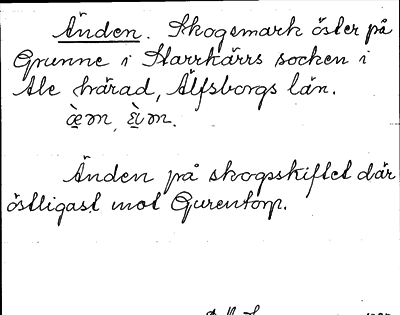 Änden. Skogsmark öster på
Grunne i Starrkärrs socken i
Ale härad, Älfsborgs län.
Änden på skogsskiftet där
östligast mot Gurentorp.